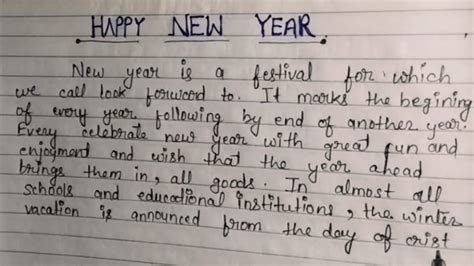 HAPPY NEW YEAR.
New year is a festival for which
we call look forword to. It marks the begining
of every year following by end of another year.
Every celebrate new year with great fun and
enjoyment and wish that the year ahead
brings them in, all goods. In almost all
schools and educational institutions, the winter
vacation is announced from the day of crist